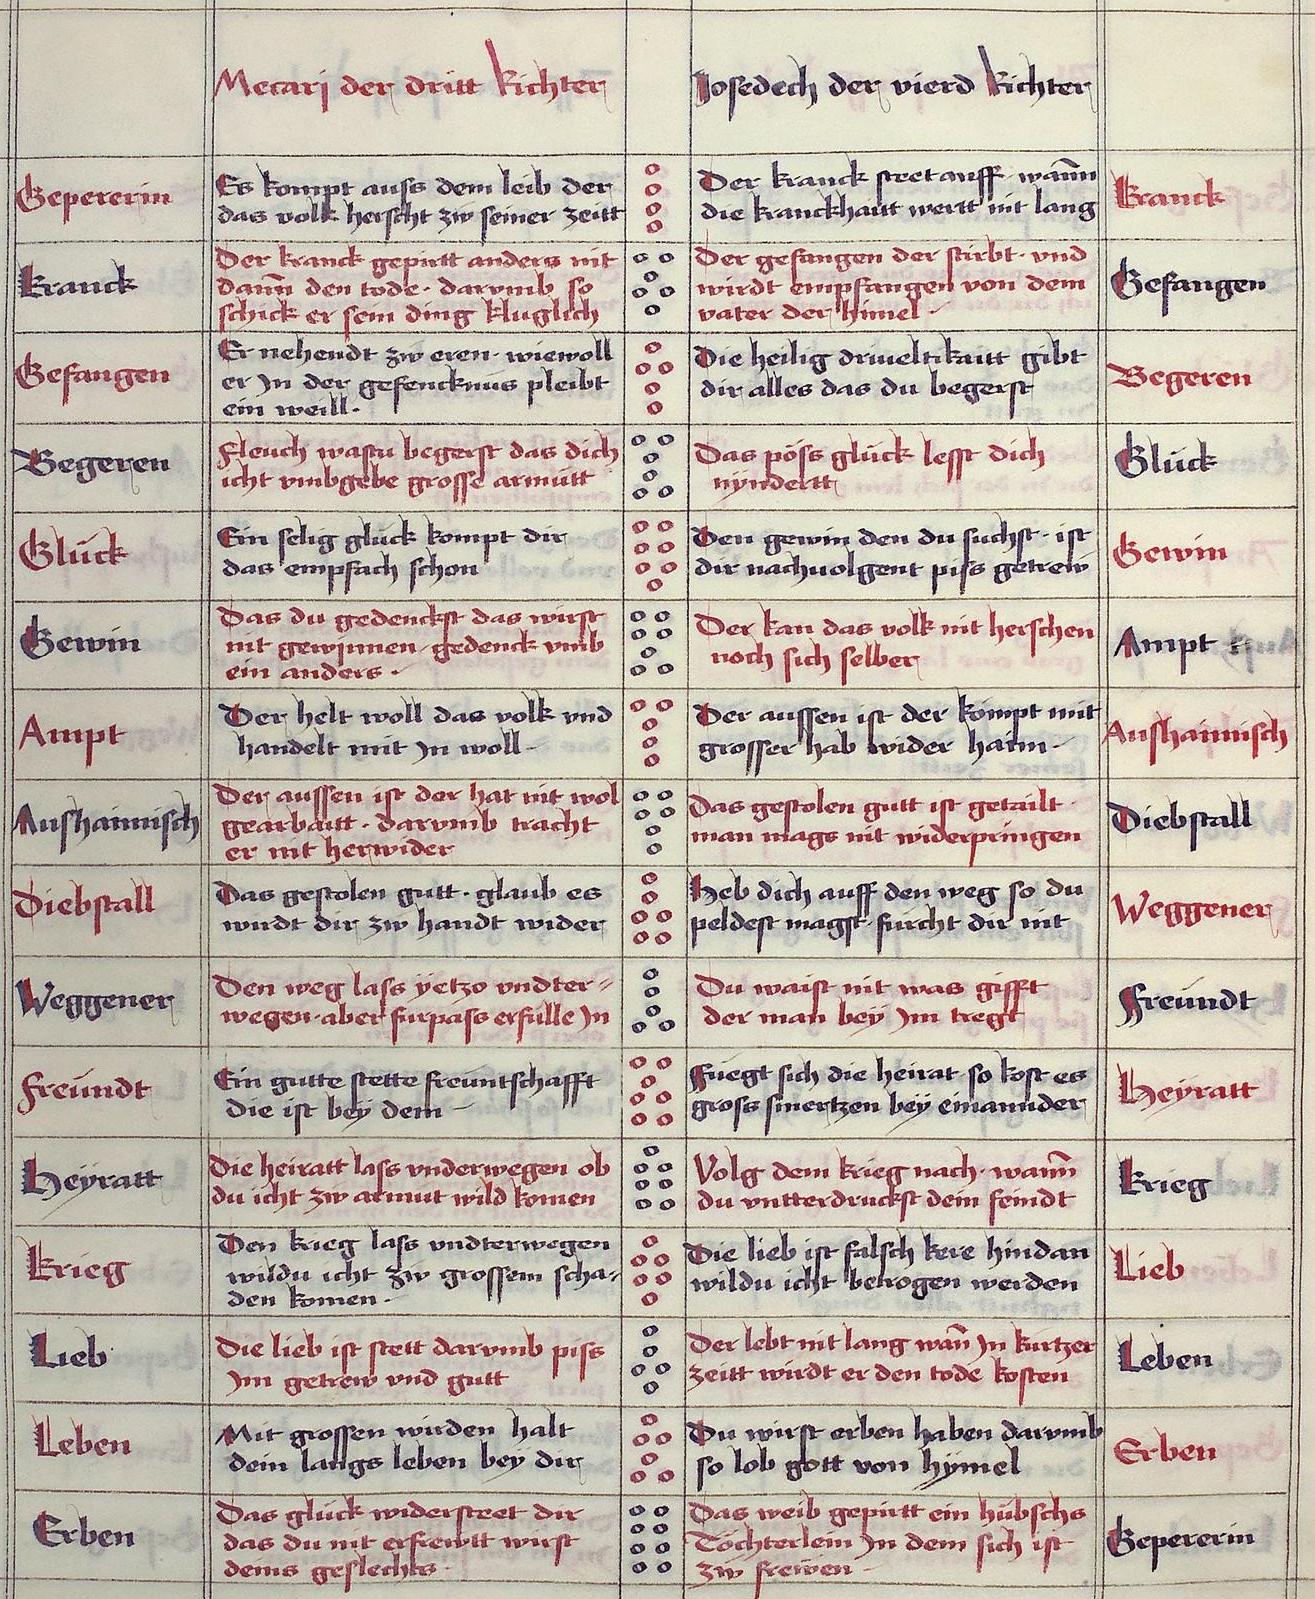 Mecarj der dritt Richter
Josedech der vierd Richter
Gepererin
Es kompt auss dem leib der
das volk herscht zw seiner zeitt
Der kranck steet auff wann
die kranckhaut wertt nit lang
Kranck
Kranck
Der kranck gepirtt anders nit
dann den tode · darvmb so
schick er sein ding kluglich
Der gefangen der stirbt · vnd
wirdt empfangen von dem
vater der himel ·
Gefangen
Gefangen
Er nehendt zw eren · wiewoll
er Jn der gefencknus pleibt
ein weill ·
Die heilig driueltikaitt gibt
dir alles das du begerst
Begeren
Begeren
Fleuch wastu begerst das dich
icht vmbgebe grosse armutt
Das pöss glück lesst dich
nyndertt
Glück
Glück
Ein selig glück kompt dir
das empfach schon
Den gewin den du suchst · ist
dir nachuolgent piss getrew
Gewin
Gewin
Das du gedenckst das wirst
nit gewinnen gedenck vmb
ein anders ·
Der kan das volk nit herschen
noch sich selber
Ampt
Ampt
Der helt woll das volk vnd
handelt mit Jn woll ·
Der aussen ist der kompt mit
grosser hab wider haim ·
Aushaimisch
Aushaimisch
Der aussen ist der hat nit wol
gearbaitt · darvmb tracht
er nit herwider
Das gestolen gutt ist getailt
man mags nit widerpringen
Diebstall
Diebstall
Das gestolen gutt · glaub es
wirdt dir zw handt wider
Heb dich auff den weg so du
peldest magst furcht dir nit
Weggener
Weggener
Den weg lass yetzo vndter=
wegen · aber furpass erfulle Jn
Du waist nit was gifft
der man bey Jm tregt
Freundt
Freundt
Ein gutte stette freuntschafft
die ist bey dem
Fuegt sich die heirat so kost es
gross smertzen bey einannder
Heyratt
Heyratt
Die heiratt lass vnderwegen ob
du icht zw armut wild komen
Volg dem krieg nach · wann
du vntterdruckst dein feindt
Krieg
Krieg
Den krieg lass vndterwegen
wildu icht zw grossem scha=
den komen ·
Die lieb ist falsch kere hindan
wildu icht betrogen werden
Lieb
Lieb
Die lieb ist stett darvmb piss
Jm getrew vnd gutt
Der lebt nit lang wann Jn kurtzer
zeitt wirdt er den tode kosten
Leben
Leben
Mit grossen wirden halt
dein langs leben bey dir
Du wirst erben haben darvmb
so lob gott von hymel
Erben
Erben
Das glück widersteet dir
das du nit erfrewtt wirst
deins geslechts ·
Das weib gepirtt ein hübschs
Töchterlein Jn dem sich ist
zw frewen ·
Gepererin